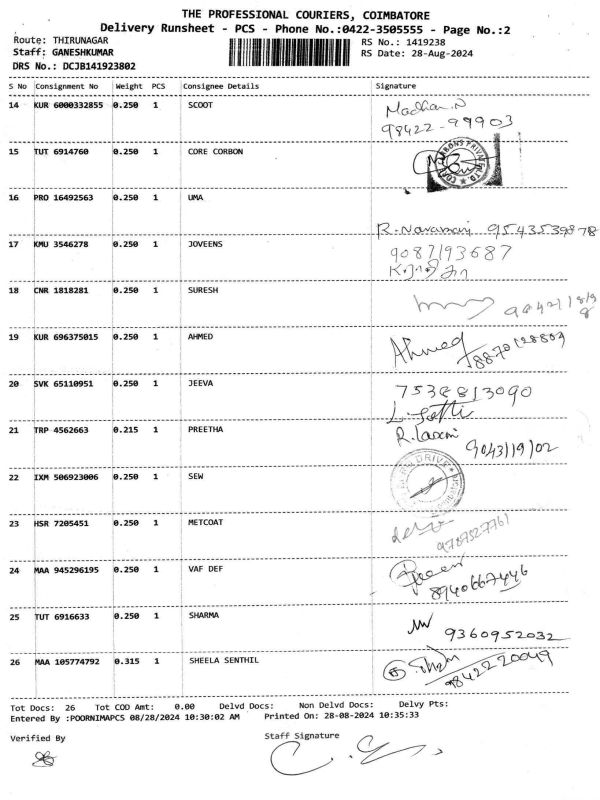 THE PROFESSIONAL COURIERS, COIMBATORE
Delivery Runsheet - PCS - Phone No.:0422-3505555 - Page No.:2
Route: THIRUNAGAR
RS No.: 1419238
Staff: GANESHKUMAR
RS Date: 28-Aug-2024
DRS No.: DCJB141923802
S No Consignment No Weight PCS Consignee Details Signature
14 KUR 6000332855 0.250 1 SCOOT
Madhan.N
98422-99903
15 TUT 6914760 0.250 1 CORE CORBON
16 PRO 16492563 0.250 1 UMA
R.Naramani 9543539878
17 KMU 3546278 0.250 1 JOVEENS
9087193687
18 CNR 1818281 0.250 1 SURESH
19 KUR 696375015 0.250 1 AHMED
Ahmed
20 SVK 65110951 0.250 1 JEEVA
7538813090
21 TRP 4562663 0.215 1 PREETHA
R.Laxmi
9043119102
22 IXM 506923006 0.250 1 SEW
23 HSR 7205451 0.250 1 METCOAT
9787527761
24 MAA 945296195 0.250 1 VAF DEF
8940667446
25 TUT 6916633 0.250 1 SHARMA
9360952032
26 MAA 105774792 0.315 1 SHEELA SENTHIL
9842220049
Tot Docs: 26 Tot COD Amt: 0.00 Delvd Docs: Non Delvd Docs: Delvy Pts:
Entered By :POORNIMAPCS 08/28/2024 10:30:02 AM Printed On: 28-08-2024 10:35:33
Verified By
Staff Signature